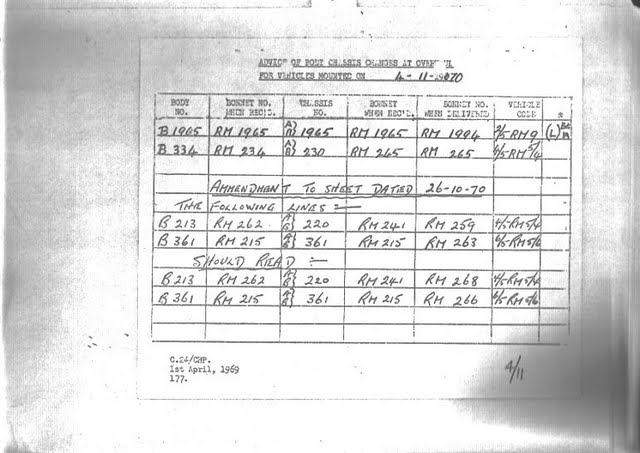 ADVICE OF BODY CHASSIS CHANGES AT OVERHAUL
FOR VEHICLES MOUNTED ON 4-11-1970
BODY NO. BONNET NO. WHEN REC'D. CHASSIS NO. BONNET WHEN REC'D. BONNET NO. WHEN DELIVERED VEHICLE CODE *
B 1965 RM 1965 A) B) 1965 RM 1965 RM 1994 2/5-RM 9 (L)
B 334 RM 234 A) B) 230 RM 245 RM 265 4/5-RM 5/4
AMMENDMENT TO SHEET DATED 26-10-70
THE FOLLOWING LINES :-
B 213 RM 262 A) B) 220 RM 241 RM 259 4/5-RM 5/4
B 361 RM 215 A) B) 361 RM 215 RM 263 4/5-RM 5/6
SHOULD READ :-
B 213 RM 262 A) B) 220 RM 241 RM 268 4/5-RM 5/4
B 361 RM 215 A) B) 361 RM 215 RM 266 4/5-RM 5/6
C.24/CHP.
1st April, 1969
177.
4/11